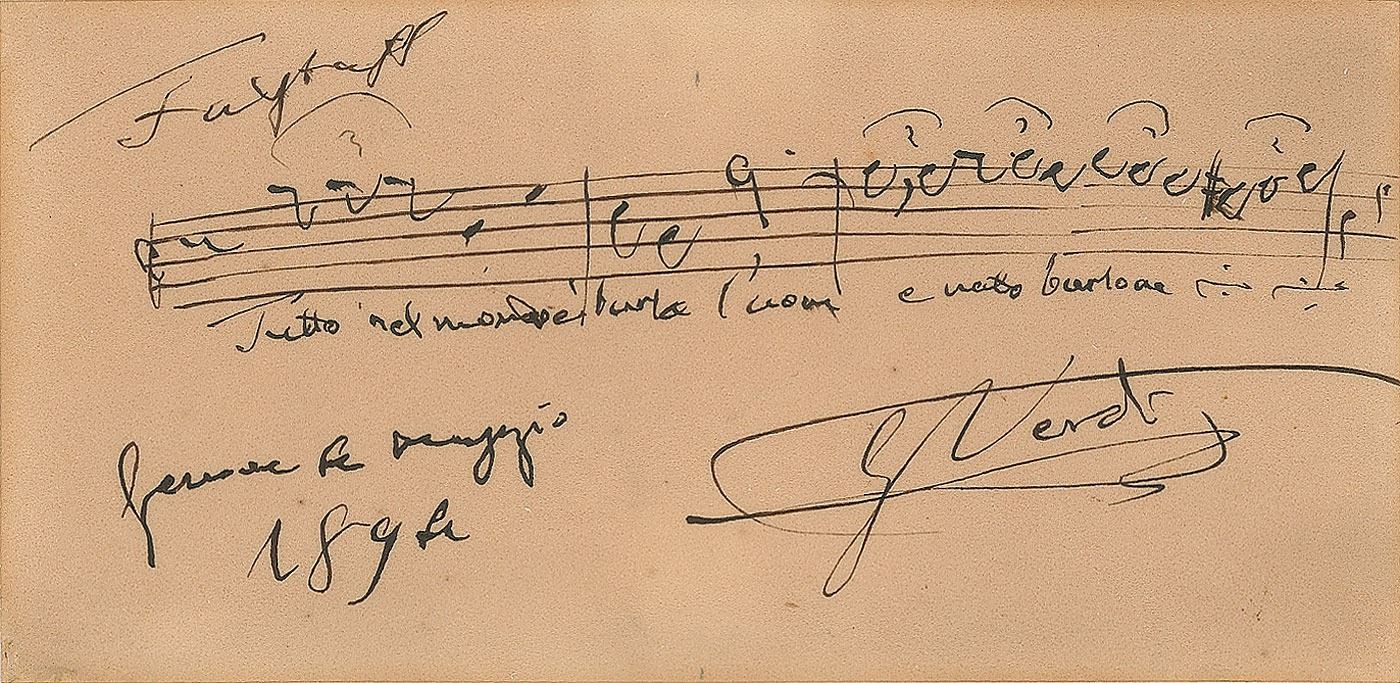 Falstaff
Tutto nel mondo è burla l'uom e nato burlone
Genova 4 maggio
1894
GVerdi